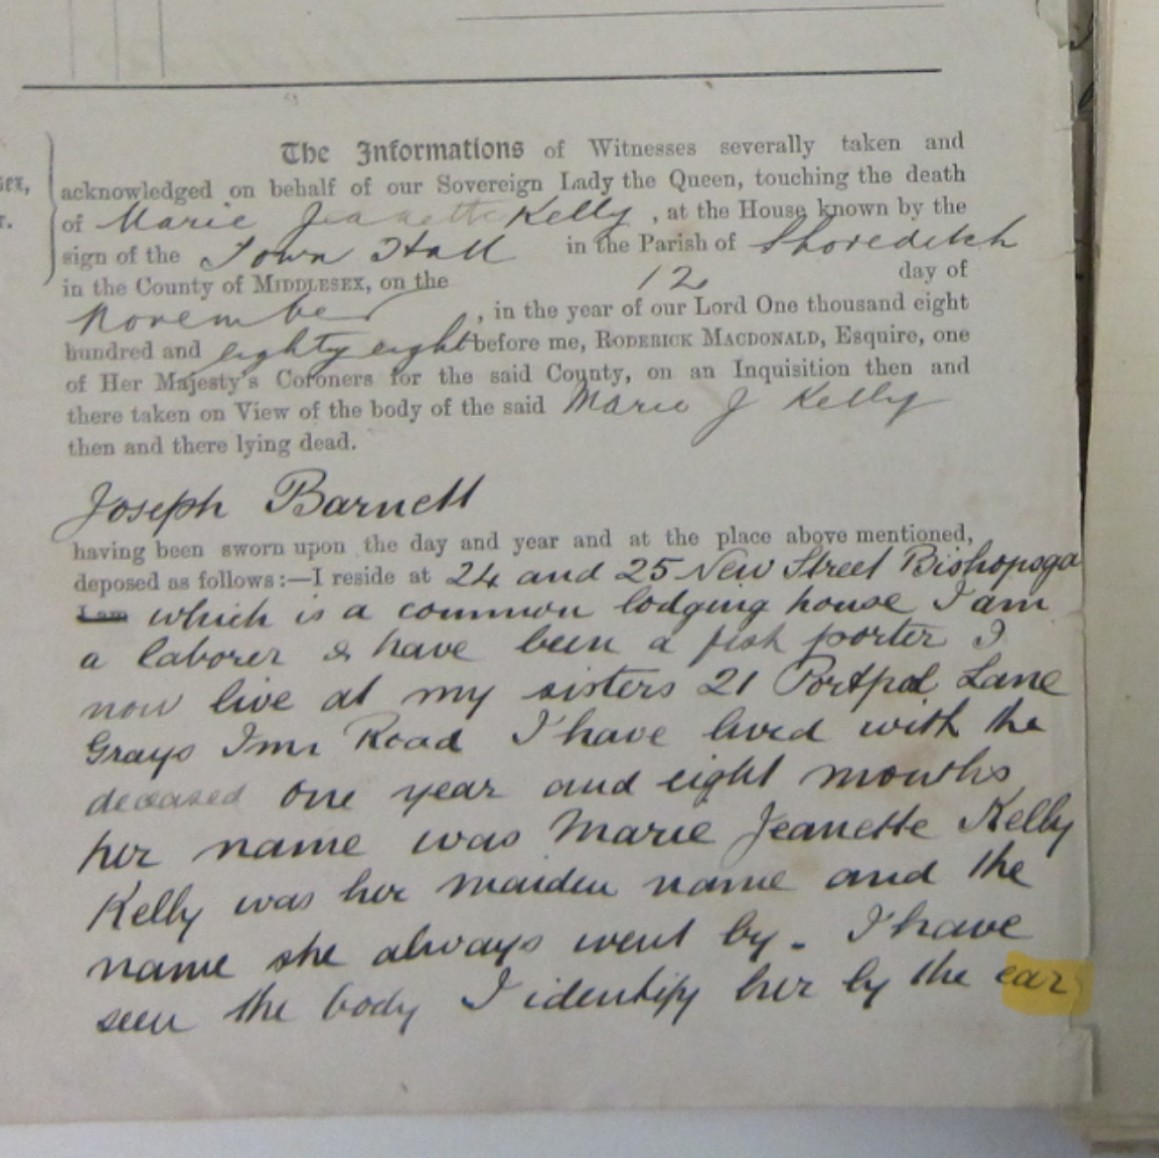 The Informations of Witnesses severally taken and
acknowledged on behalf of our Sovereign Lady the Queen, touching the death
of Marie Jeanette Kelly, at the House known by the
sign of the Town Hall in the Parish of Shoreditch
in the County of MIDDLESEX, on the 12 day of
November, in the year of our Lord One thousand eight
hundred and eighty eight before me, RODERICK MACDONALD, Esquire, one
of Her Majesty's Coroners for the said County, on an Inquisition then and
there taken on View of the body of the said Marie J Kelly
then and there lying dead.
Joseph Barnett
having been sworn upon the day and year and at the place above mentioned,
deposed as follows:—I reside at 24 and 25 New Street Bishopsga
I am which is a common lodging house I am
a laborer & have been a fish porter I
now live at my sisters 21 Portpool Lane
Grays Inn Road I have lived with the
deceased one year and eight months
her name was Marie Jeanette Kelly
Kelly was her maiden name and the
name she always went by. I have
seen the body I identify her by the ear